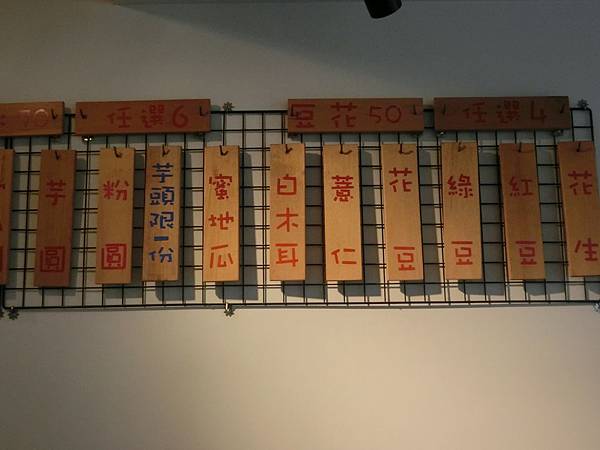 70
任選6
豆花50
任選4
花生
紅豆
綠豆
花豆
薏仁
白木耳
蜜地瓜
芋頭限一份
粉圓
芋圓